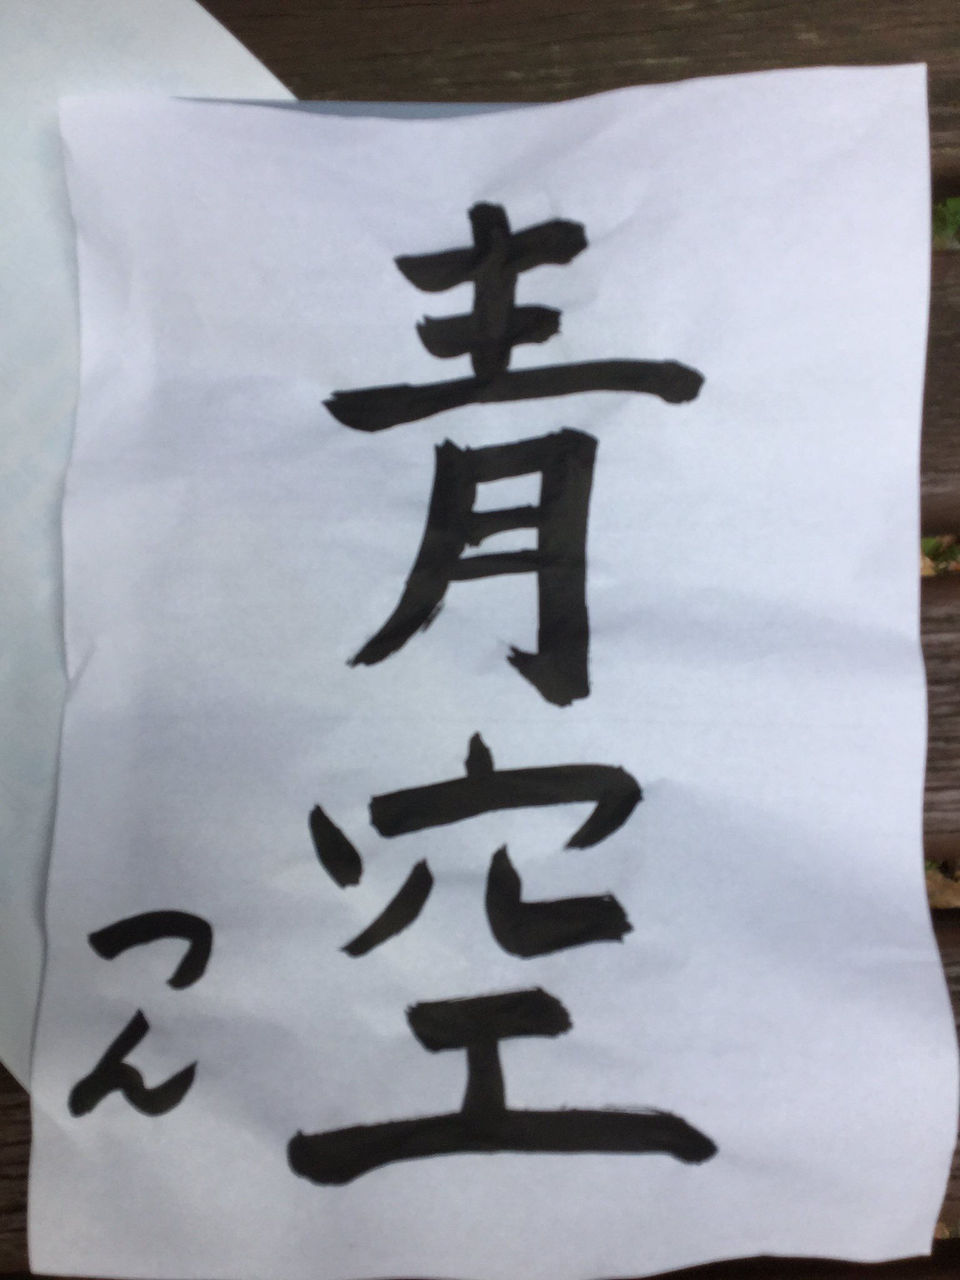 青空
つん